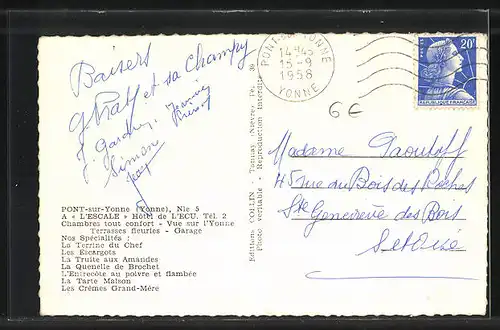 Baisers
et sa Champy
Simon
PONT-sur-YONNE
14H45
15-9
1958
YONNE
POSTES
20F
REPUBLIQUE FRANÇAISE
6€
PONT-sur-Yonne (Yonne), Nle 5
A « L'ESCALE » Hôtel de L'ECU. Tél. 2
Chambres tout confort - Vue sur l'Yonne
Terrasses fleuries - Garage
Nos Spécialités :
La Terrine du Chef
Les Escargots
La Truite aux Amandes
La Quenelle de Brochet
L'Entrecôte au poivre et flambée
La Tarte Maison
Les Crêmes Grand-Mère
Editions COLLIN - Tannay (Nièvre)
Photo véritable - Reproduction Interdite
Madame
45 rue du Bois des Roches
Ste Geneviève des Bois
S et Oise